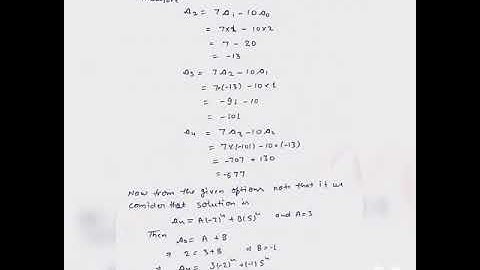 A₂ = 7A₁ - 10A₀
= 7×1 - 10×2
= 7 - 20
= -13
A₃ = 7A₂ - 10A₁
= 7×(-13) - 10×1
= -91 - 10
= -101
A₄ = 7A₃ - 10A₂
= 7×(-101) - 10×(-13)
= -707 + 130
= -577
Now from the given options note that if we
consider that solution is
Aₙ = A(-2)ⁿ + B(5)ⁿ and A=3
Then
A₀ = A + B
⇒ 2 = 3+B ⇒ B=-1
⇒ Aₙ = 3(-2)ⁿ + (-1)5ⁿ